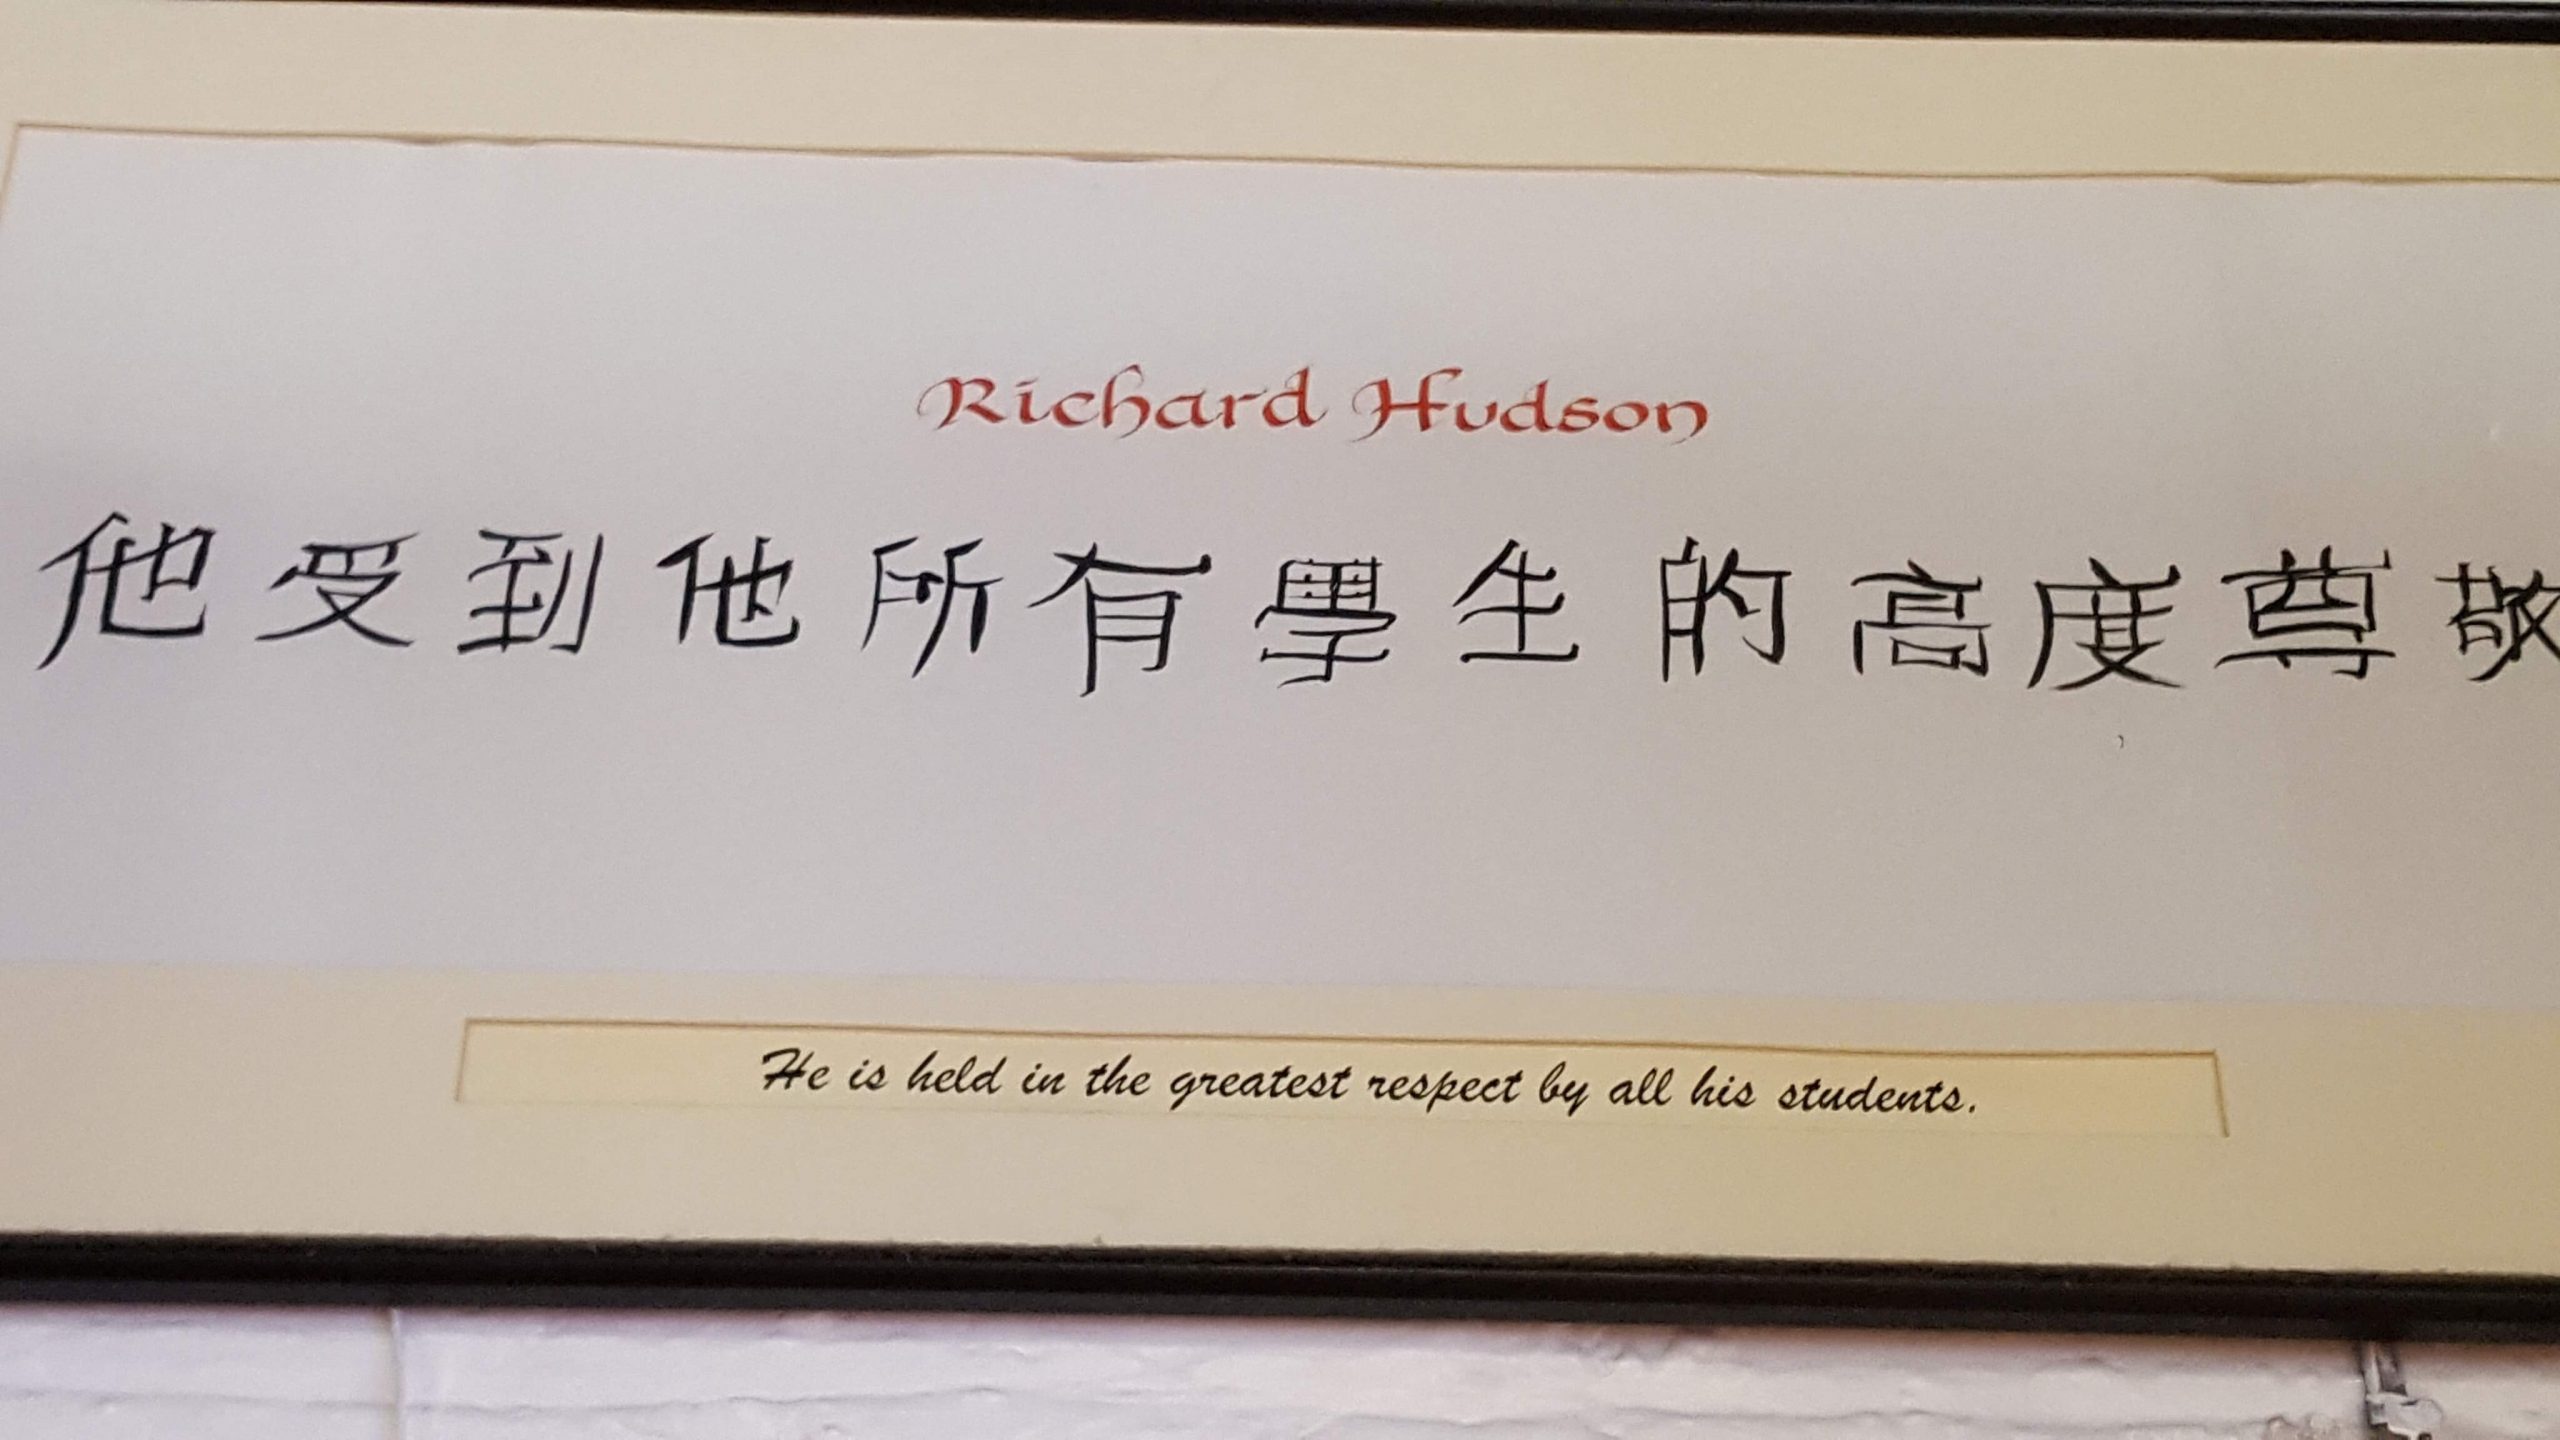 Richard Hudson
他受到他所有學生的高度尊敬
He is held in the greatest respect by all his students.